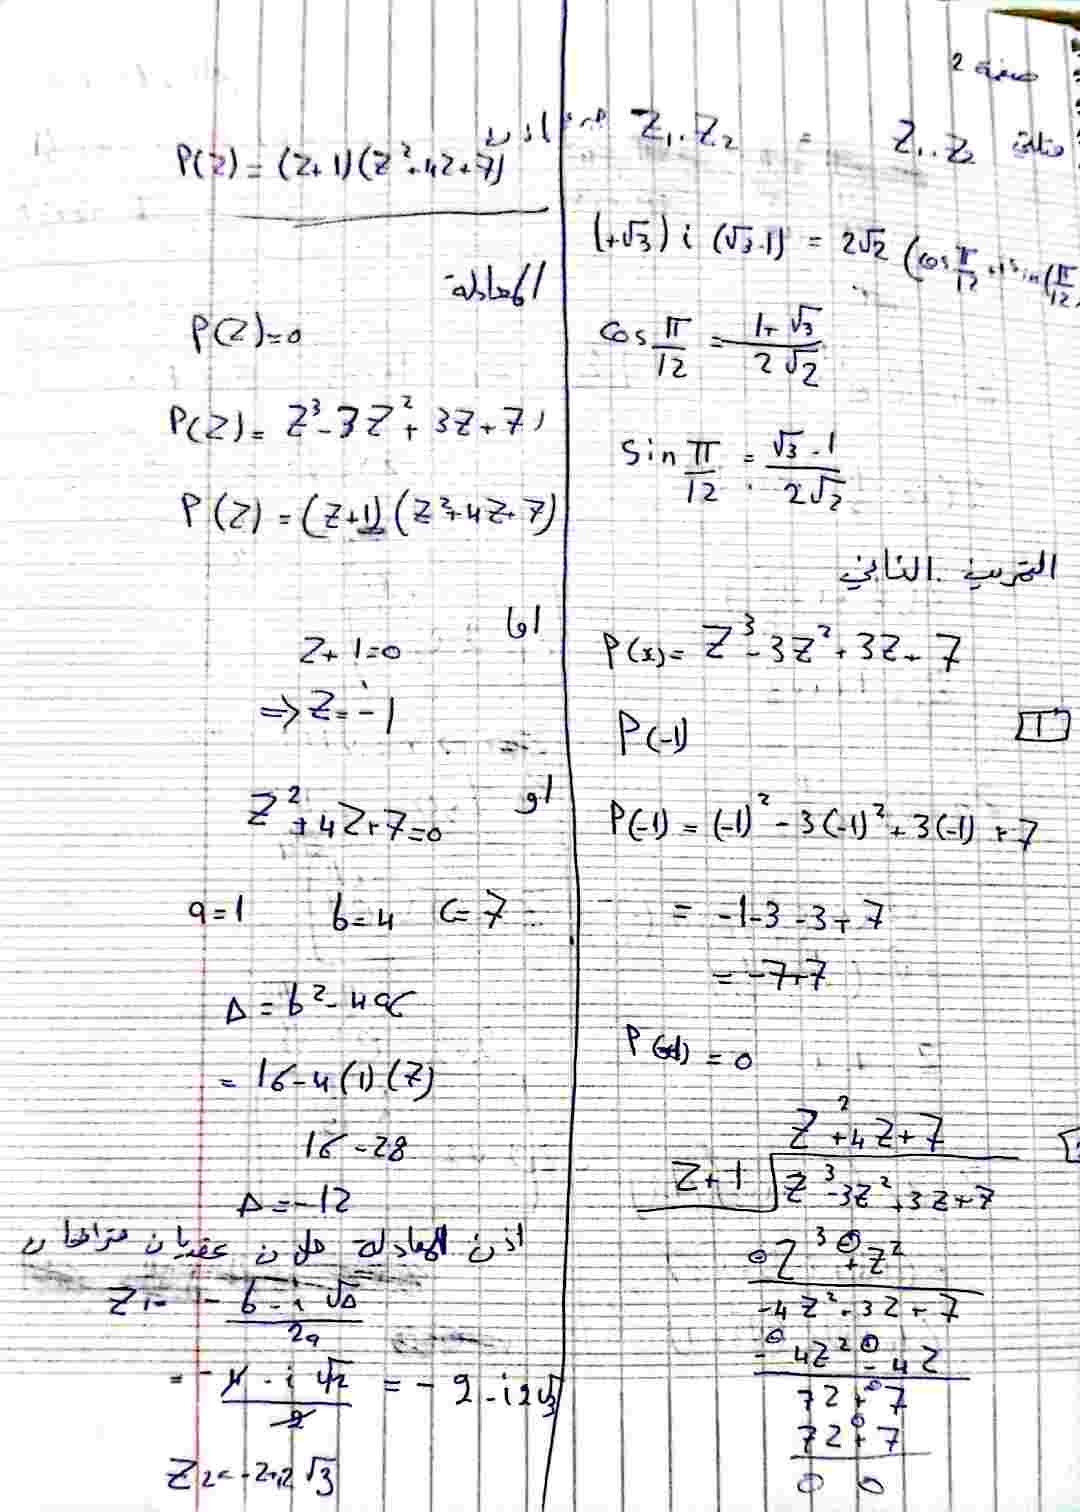 صفحة 2
Z₁.Z₂ = Z₁.Z₂
(1+√3) i (√3-1) = 2√2 (cos π/12 + i sin (π/12
cos π/12 = 1+√3 / 2√2
sin π/12 = √3-1 / 2√2
التمرين الثاني
P(x) = Z³-3Z²+3Z+7
1
P(-1)
P(-1) = (-1)² - 3(-1)² + 3(-1) + 7
= -1-3-3+7
= -7+7
= 0
Z²+4Z+7
Z+1 Z³-3Z²+3Z+7
Z³+Z²
-4Z²+3Z+7
-4Z²-4Z
7Z+7
7Z+7
0 0
اذن
P(Z) = (Z+1)(Z²+4Z+7)
المعادلة
P(Z)=0
P(Z) = Z³-3Z²+3Z+7
P(Z) = (Z+1)(Z²+4Z+7)
اما
Z+1=0
⇒ Z=-1
او
Z²+4Z+7=0
a=1 b=4 c=7
Δ = b²-4ac
= 16-4(1)(7)
16-28
Δ=-12
اذن المعادلة حلان عقديان مترافقان
Z₁ = -b-i√Δ / 2a
= -2-i2√3
Z₂=-2+2√3